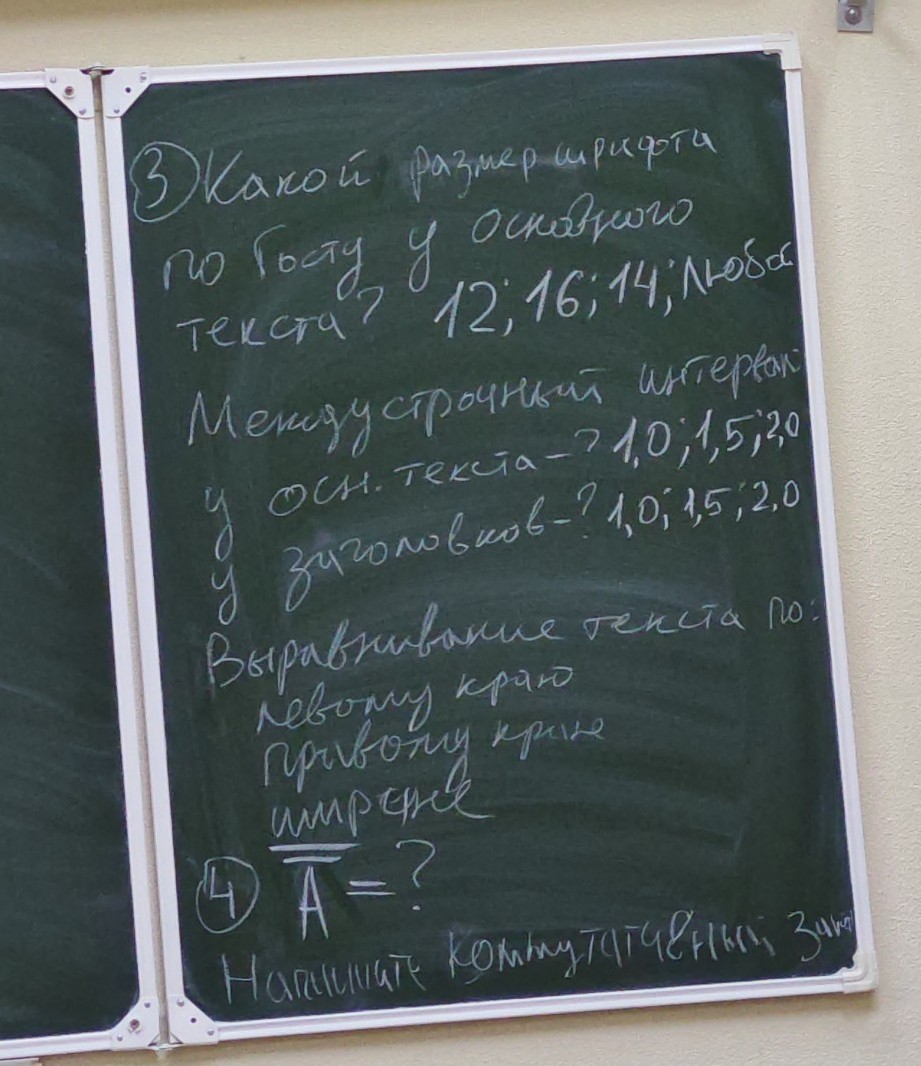 ③ Какой размер шрифта
по Госту у основного
текста? 12; 16; 14; любой
Междустрочный интервал
у осн. текста - ? 1,0; 1,5; 2,0
у заголовков - ? 1,0; 1,5; 2,0
Выравнивание текста по:
левому краю
правому краю
ширине
④ A̿ = ?
Напишите коммутативный зак